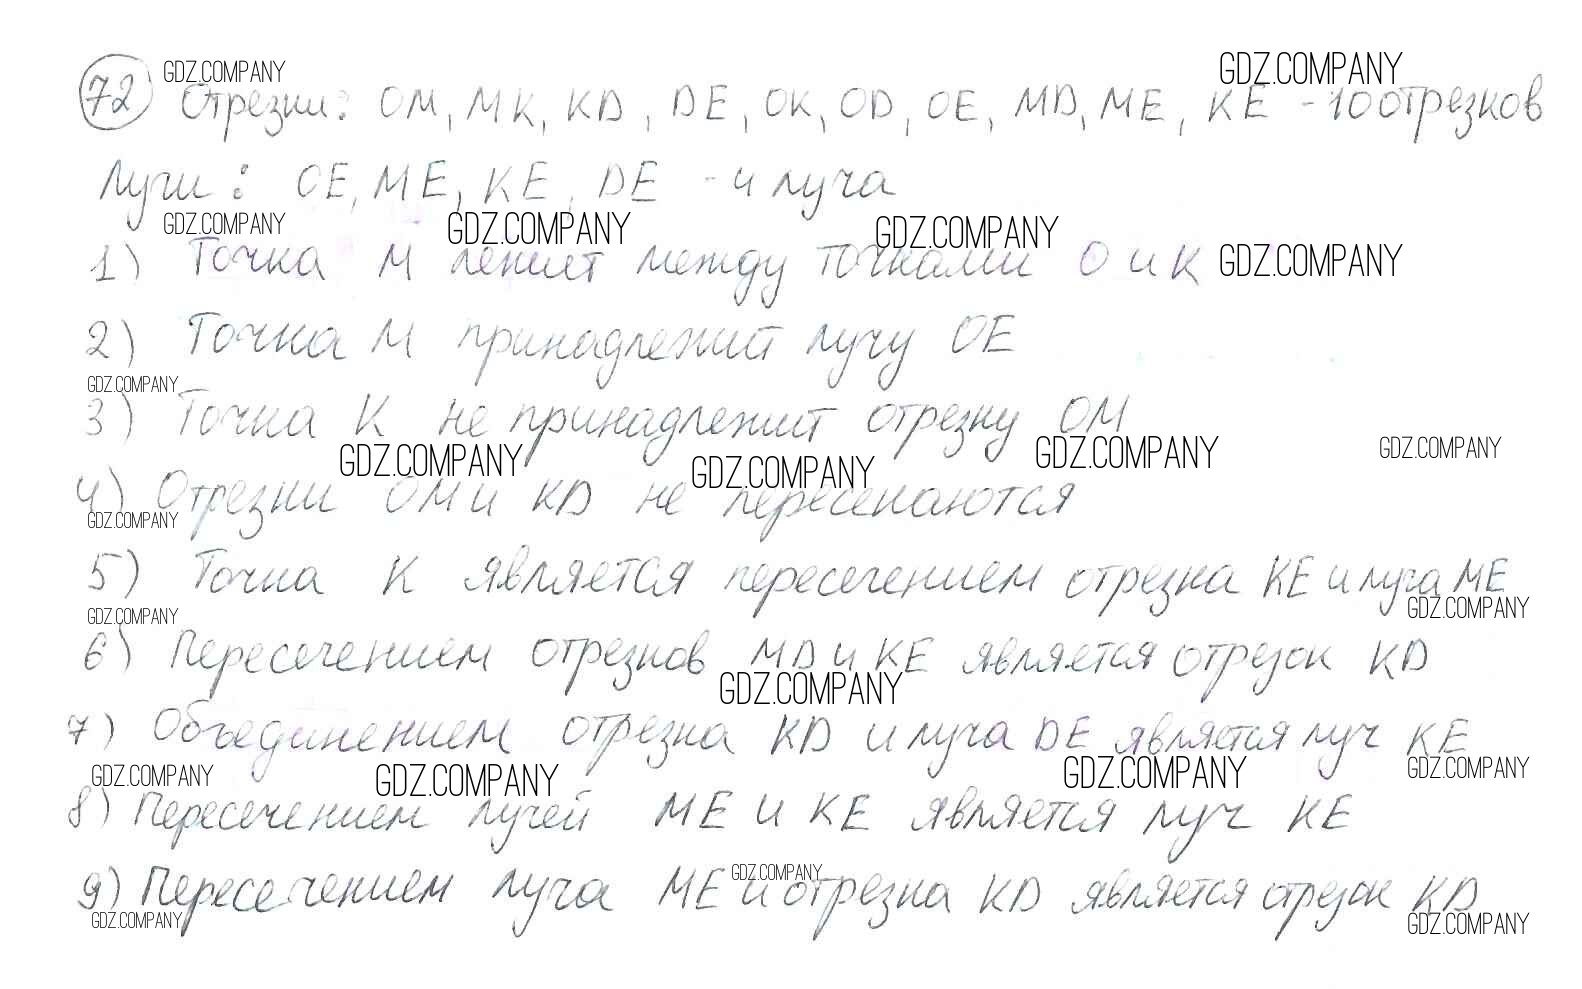 GDZ.COMPANY GDZ.COMPANY
72 Отрезки: OM, MK, KD, DE, OK, OD, OE, MD, ME, KE - 10 отрезков
Лучи: OE, ME, KE, DE - 4 луча
GDZ.COMPANY GDZ.COMPANY GDZ.COMPANY
1) Точка M лежит между точками O и K GDZ.COMPANY
2) Точка M принадлежит лучу OE
GDZ.COMPANY
3) Точка K не принадлежит отрезку OM
GDZ.COMPANY GDZ.COMPANY GDZ.COMPANY GDZ.COMPANY
4) Отрезки OM и KD не пересекаются
GDZ.COMPANY
5) Точка K является пересечением отрезка KE и луча ME
GDZ.COMPANY GDZ.COMPANY
6) Пересечением отрезков MD и KE является отрезок KD
GDZ.COMPANY
7) Объединением отрезка KD и луча DE является луч KE
GDZ.COMPANY GDZ.COMPANY GDZ.COMPANY GDZ.COMPANY
8) Пересечением лучей ME и KE является луч KE
GDZ.COMPANY
9) Пересечением луча ME и отрезка KD является отрезок KD
GDZ.COMPANY GDZ.COMPANY